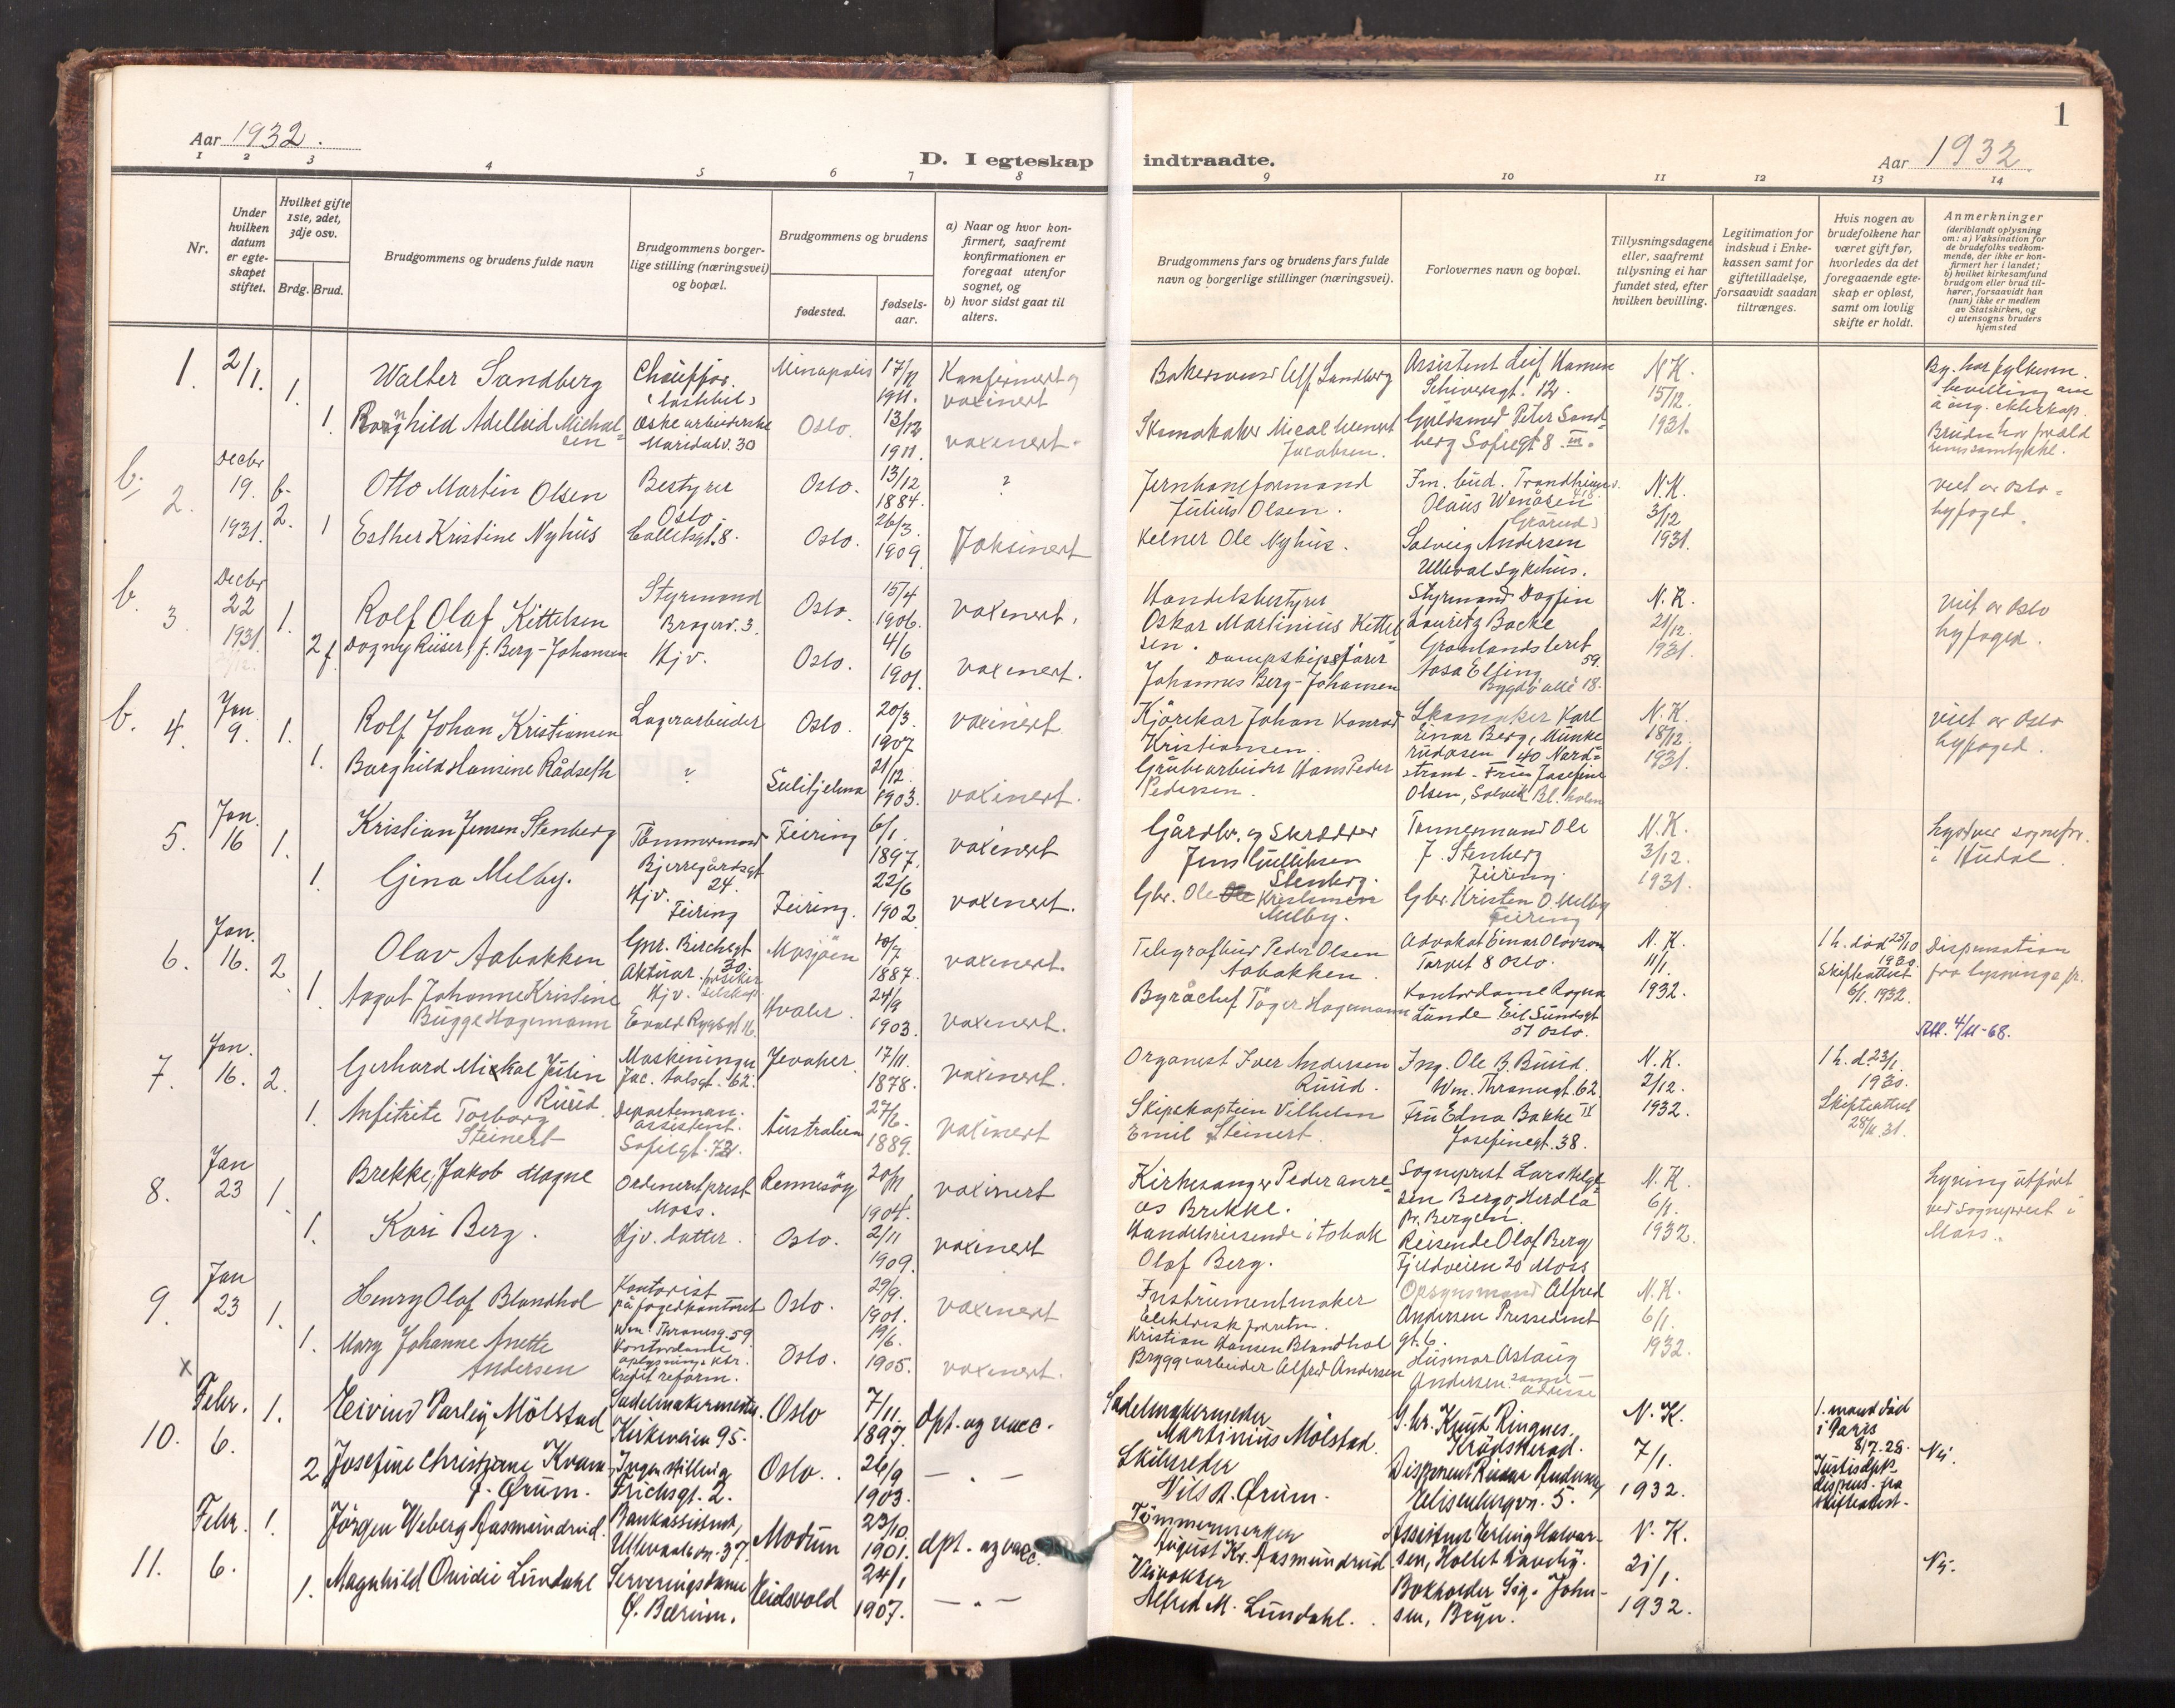 Aar 1932.
D. I egteskap
indtraadte.
Aar 1932
1
1 2 3 4 5 6 7 8 9 10 11 12 13 14
Nr.
Under hvilken datum er egteskapet stiftet.
Hvilket gifte 1ste, 2det, 3dje osv.
Brdg. Brud.
Brudgommens og brudens fulde navn
Brudgommens borgerlige stilling (næringsvei) og bopæl.
Brudgommens og brudens
fødested.
fødselsaar.
a) Naar og hvor konfirmert, saafremt konfirmationen er foregaat utenfor sognet, og
b) hvor sidst gaat til alters.
Brudgommens fars og brudens fars fulde navn og borgerlige stillinger (næringsvei).
Forlovernes navn og bopæl.
Tillysningsdagene eller, saafremt tillysning ei har fundet sted, efter hvilken bevilling.
Legitimation for indskud i Enkekassen samt for giftetilladelse, forsaavidt saadan tiltrænges.
Hvis nogen av brudefolkene har været gift før, hvorledes da det foregaaende egteskap er opløst, samt om lovlig skifte er holdt.
Anmerkninger (deriblandt oplysning om: a) Vaksination for de brudefolks vedkommende, der ikke er konfirmert her i landet; b) hvilket kirkesamfund brudgom eller brud tilhører, forsaavidt han (hun) ikke er medlem av Statskirken, og c) utensogns bruders hjemsted
1. 2/1. 1. Walter Sandberg Chauffør. Minapolis 17/11 1911. Konfirmert og vaxinert
Bakersvend Alf Sandberg Assistent Leif Hansen Schiversgt. 12. N.K. 15/12. 1931.
1. Ragnhild Adelleid Michalsen Eske arbeiderske Maridalsv. 30 Oslo. 13/12 1911. vaxinert.
Skomaker Jacobsen. Guldsmed Peter Sandberg Sofiegt 8 III.
b. 2. Decbr 19. 1931. b. 2. Otto Martin Olsen Bestyrer Oslo. Oslo. 13/12 1884. ?
Jernbaneformand Julius Olsen. Olaus N.K. 3/12 1931. viet av Oslo byfoged.
1 Esther Kristine Nyhus Colletsgt. 8. Oslo. 26/3. 1909 Vaksinert
Kelner Ole Nyhus. Solveig Andersen Ulleval sykehus.
b. 3. Decbr 22 1931. 1. Rolf Olaf Kittelsen Styrmand Oslo. 15/4 1906. vaxinert.
Handelsbestyrer Oskar Martinius Kittelsen. Styrmand Dagfin Lauritz Backe Grønlandsleret 59. N.K. 21/12. 1931. Viet av Oslo byfoged.
2 f. Dagny Riiser f. Berg-Johansen Hjv. Oslo. 4/6 1901. vaxinert.
Dampskipsfører Johannes Berg-Johansen Aasa Elfing Bygdö alle 18.
b. 4. Jan. 9. 1. Rolf Johan Kristiansen Lagerarbeider Oslo. 20/3. 1907 vaxinert.
Kjörekar Johan Konrad Kristiansen. Skomaker Karl Einar Berg, Munkerudåsen 40 Nordstrand. N.K. 18/12. 1931. viet av Oslo byfoged.
1. Borghild Hansine Rådseth ? Sulitjelma 21/12. 1903. vaxinert.
Grubearbeider Hans Peder Pedersen. Fru Josefine Olsen, Solvik
5. Jan. 16 1. Kristian Jensen Stenberg Tömmermand Bjerregårdsgt 24. Feiring 6/1. 1897. vaxinert
Gårdbr. og Skrædder Jens Gulliksen Stenberg. Tømmermand Ole J. Stenberg Feiring. N.K. 3/12. 1931. lyst ver sognepr. i Hurdal.
1. Gina Melby. Hjv. Feiring Feiring. 22/6 1902 vaxinert.
Gbr. Ole Kristiansen Melby. Gbr. Kristen O. Melby Feiring
6. Jan. 16. 2. Olav Aabakken Gnr. Birchsgt 30 Aktuar. Mosjøen 10/7 1887. vaxinert.
Telegrafbud Peder Olsen Aabakken. Advokat Einar Olavson Torvet 8 Oslo. N.K. 11/1. 1932. 1 h. död 25/10 1930 Skifteattest 6/1. 1932. Dispensation fra lysning
1. Aagot Johanne Kristine Bugge Hagemann Hjv. Evald Rygsgt 16. Hvaler. 24/9 1903. vaxinert.
Byråchef Töger Hagemann Kontordame Ragna Lunde Eil. Sundsgt 51 Oslo. 4/11-68.
7. Jan. 16. 2. Gerhard Mikal Julin Ruud. Maskiningen Jac. Aalsgt. 62. Jevaker. 17/11. 1878. vaxinert.
Organist Iver Andersen Ruud. Ing. Ole B. Buud. Wm. Thranesgt. 62. N.K. 2/12. 1932. 1 h. d. 23/1. 1930. Skifteattest 28/11. 31.
1. Anfitrite Torborg Steinert Departeman. assistent. Sofiegt. 72. Australien 27/6. 1889. vaxinert
Skipskaptein Vilhelm Emil Steinert. Fru Edna Bakke Josefinegt. 38.
8. Jan 23 1. Brekke, Jakob Magne Ordinert prest Moss. Rennesøy 20/11 1904. vaxinert
Kirkesanger Peder Andreas Brekke. Sogneprest Lars Helgesen Berg, Herdla Pr. Bergen. N.K. 6/1. 1932. Lysning utført ved sogneprest i Moss.
1. Kari Berg. Hjv. datter. Oslo. 2/11 1909. vaxinert
Handelsreisende i tobak Olaf Berg. Reisende Olaf Berg Fjeldveien 20 Moss
9. Jan 23 1. Henry Olaf Blandhol Kontorist på fogedkontoret Wm. Thranesg. 59 Oslo. 29/9. 1901. vaxinert
Instrumentmaker Elektrisk forretn. Kristian Hansen Blandhol Opsynsmand Alfred Andersen Pressedentgt. 6. N.K. 6/1. 1932.
x 1. Mary Johanne Anette Andersen Kontordame oplysnings ktr. Kredit reform. Oslo. 19/6. 1905. vaxinert.
Bryggearbeider Alfred Andersen Husmor Aslaug Andersen. samme adresse
10. Febr. 6. 1. Eivind Parley Mölstad Sadelmakermester. Kirkeveien 95. Oslo 7/11. 1897. dpt. og vacc.
Sadelmakermester Martinius Mölstad. G.br. Knut Ringnes, Krödsherad. N.K. 7/1. 1932. 1. mand död i Paris 8/7.28. Justisdpt. dispens. fra skifteattest. Nei.
2 Josefine Christiane Kvam f. Ørum. Ingen stilling Frichsgt. 2. Oslo. 26/9 1903. — " —
Skibsreder Nils A. Ørum. Disponent Andersen Elisenbergvn. 5.
11. Febr. 6. 1. Jörgen Weberg Aasmundrud. Bankassistent, Ullevaalsvn. 37. Modum 23/10. 1901. dpt. og vacc.
Tömmermerker August Kr. Aasmundrud. Assistent Erling Halvorsen, V.K. 21/1. 1932. Nei.
1. Magnhild Ovidie Lundahl Serveringsdame Ø. Bærum. Eidsvold 24/1 1907. — " —
Veivokter Alfred M. Lundahl. Bokholder Sig. Johnsen, Bryn.